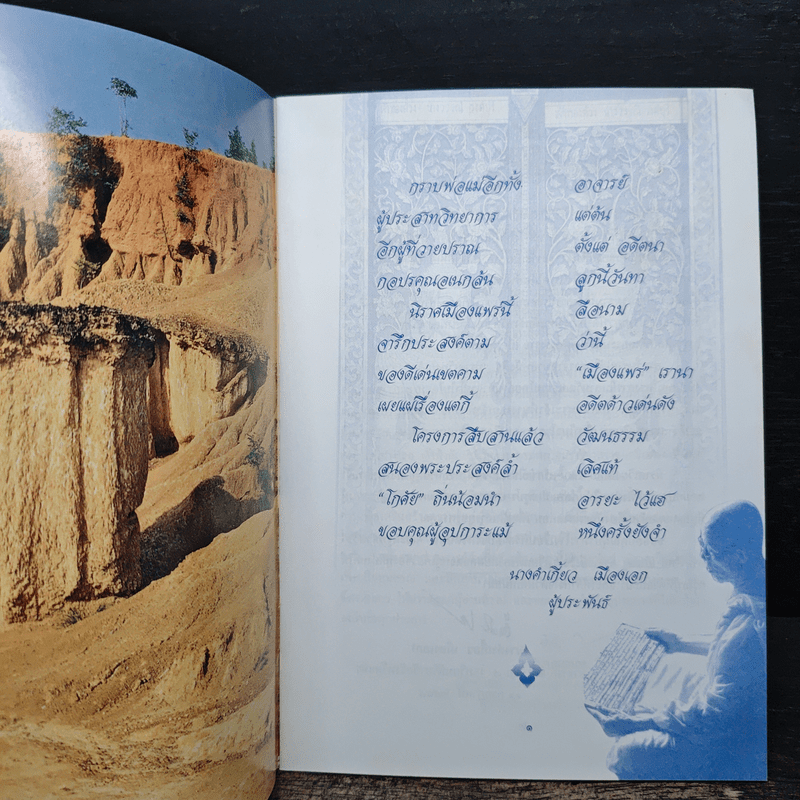 กราบพ่อแม่อีกทั้ง อาจารย์
ผู้ประสาทวิทยาการ แต่ต้น
อีกผู้ที่วายปราณ ตั้งแต่ อดีตนา
กอปรคุณอเนกล้น ลูกนี้วันทา
นิราศเมืองแพร่นี้ ลือนาม
จารึกประสงค์ตาม ว่านี้
ของดีเด่นเขตคาม “เมืองแพร่” เรานา
เผยแผ่เรื่องแต่กี้ อดีตด้าวเด่นดัง
โครงการสืบสานแล้ว วัฒนธรรม
สนองพระประสงค์ล้ำ เลิศแท้
“โกศัย” ถิ่นน้อมนำ อารยะ ไว้แฮ
ขอบคุณผู้อุปการะแม้ หนึ่งครั้งยังจำ
นางคำเกี้ยว เมืองเอก
ผู้ประพันธ์
๑